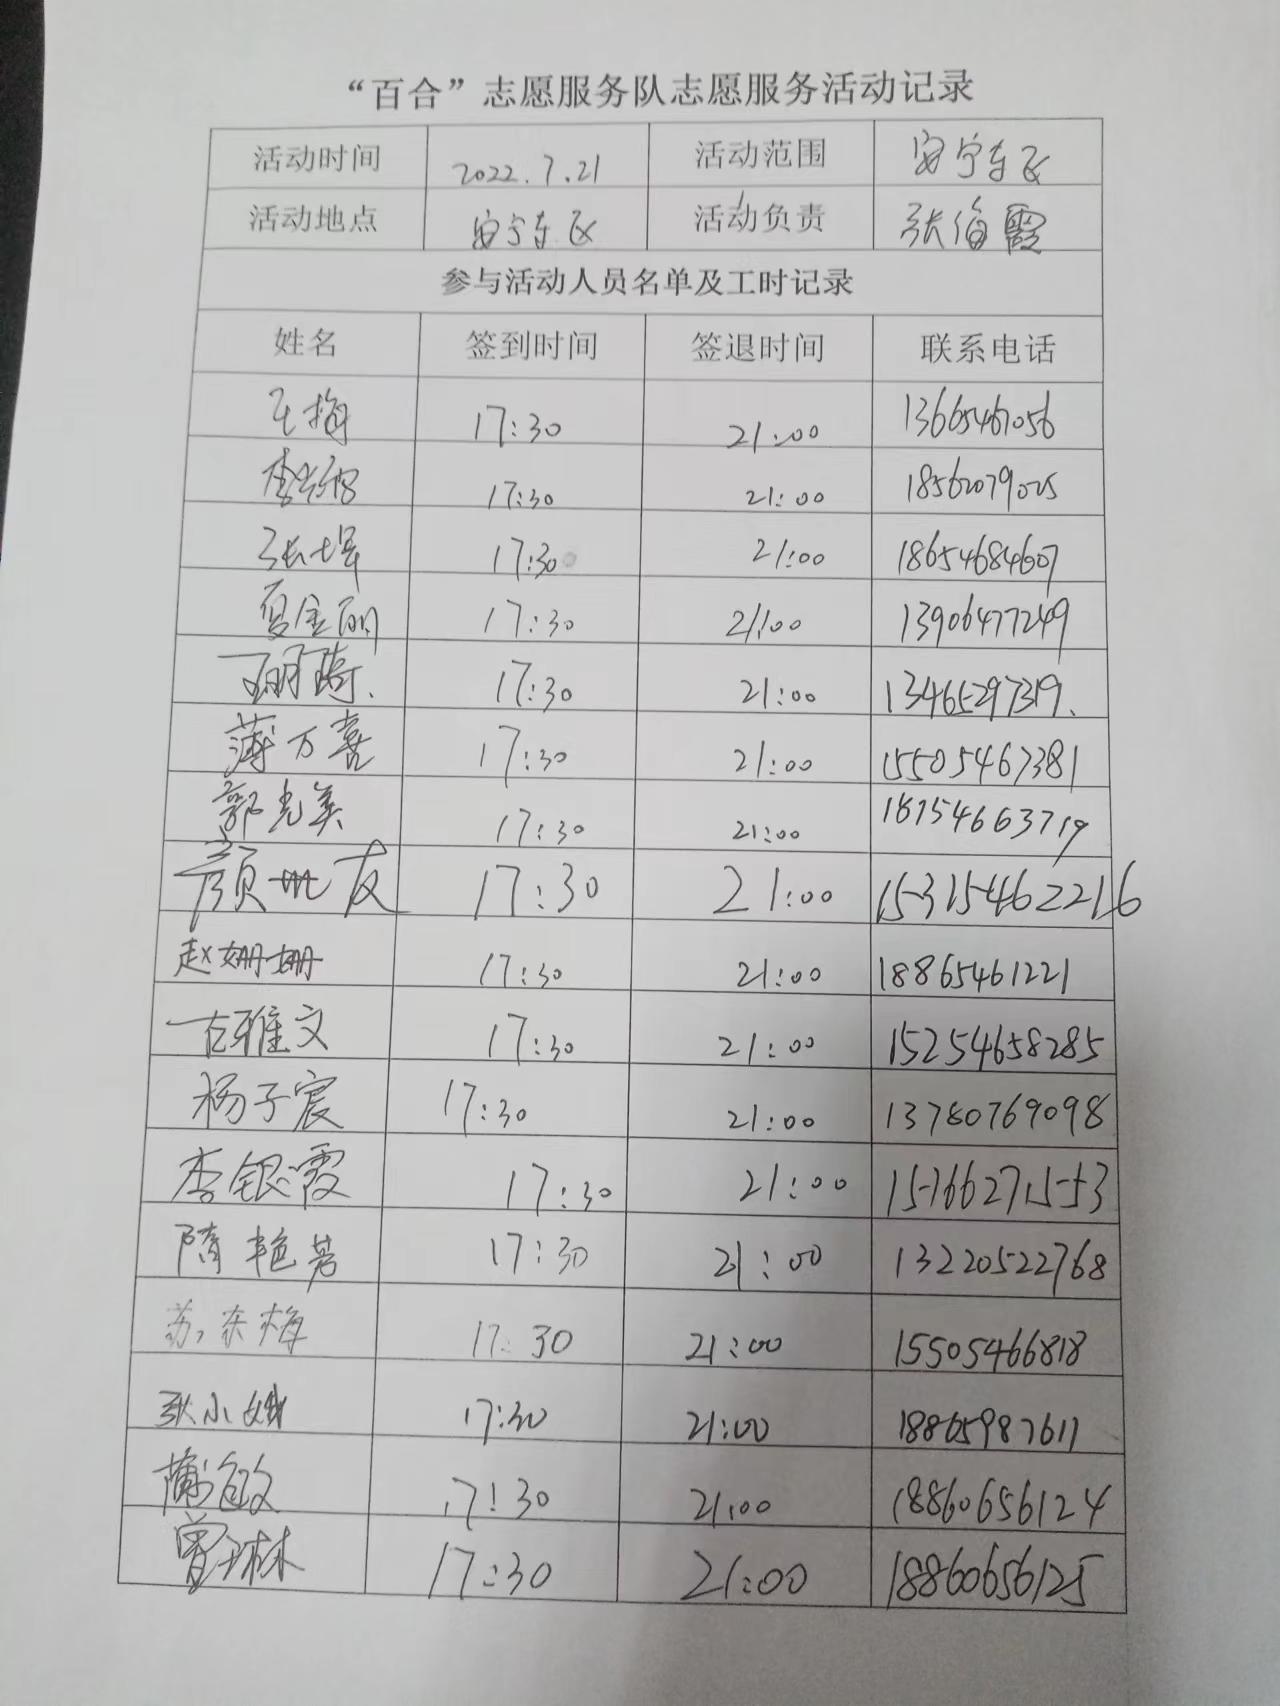 “百合”志愿服务队志愿服务活动记录
活动时间 2022.7.21 活动范围 安宁东区
活动地点 安宁东区 活动负责 张海霞
参与活动人员名单及工时记录
姓名 签到时间 签退时间 联系电话
王梅 17:30 21:00 13665461056
17:30 21:00 18562079025
17:30 21:00 18654684607
夏金丽 17:30 21:00 13906477249
17:30 21:00 13465297319.
薄万喜 17:30 21:00 15505467381
郭光美 17:30 21:00 18754663719
颜世友 17:30 21:00 15315462216
赵姗姗 17:30 21:00 18865461221
左雅文 17:30 21:00 15254658285
杨子宸 17:30 21:00 13780769098
李银霞 17:30 21:00 15766271553
隋艳芳 17:30 21:00 13220522768
苏东梅 17:30 21:00 15505466818
耿小娥 17:30 21:00 18865987611
蒲敏 17:30 21:00 18860656124
曾琳 17:30 21:00 18860656125